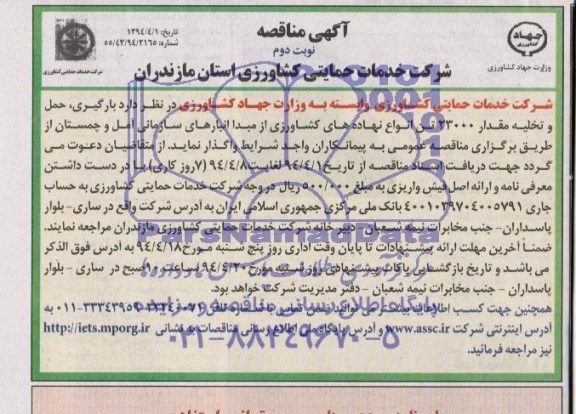 آگهی مناقصه
نوبت دوم
شرکت خدمات حمایتی کشاورزی استان مازندران
جهاد
کشاورزی
وزارت جهاد کشاورزی
تاریخ: ۱۳۹۴/۴/۱
شماره: ۵۵/۴۳/۹۴/۲۱۶۵
شرکت خدمات حمایتی کشاورزی
شرکت خدمات حمایتی کشاورزی وابسته به وزارت جهاد کشاورزی در نظر دارد بارگیری، حمل
و تخلیه مقدار ۲۳۰۰۰ تن انواع نهاده های کشاورزی از مبدا انبارهای سازمانی آمل و چمستان از
طریق برگزاری مناقصه عمومی به پیمانکاران واجد شرایط واگذار نماید. از متقاضیان دعوت می
گردد جهت دریافت اسناد مناقصه از تاریخ ۹۴/۴/۱ لغایت ۹۴/۴/۸ (۷روز کاری) با در دست داشتن
معرفی نامه و ارائه اصل فیش واریزی به مبلغ ۵۰۰/۰۰۰ ریال در وجه شرکت خدمات حمایتی کشاورزی به حساب
جاری ۴۰۰۱۰۳۹۷۰۴۰۰۵۷۹۱ بانک ملی مرکزی جمهوری اسلامی ایران به آدرس شرکت واقع در ساری- بلوار
پاسداران- جنب مخابرات نیمه شعبان - دبیرخانه شرکت خدمات حمایتی کشاورزی مازندران مراجعه نمایند.
ضمناً آخرین مهلت ارائه پیشنهادات تا پایان وقت اداری روز پنج شنبه مورخ ۹۴/۴/۱۸ به آدرس فوق الذکر
می باشد و تاریخ بازگشایی پاکات پیشنهادی روز شنبه مورخ ۹۴/۴/۲۰ ساعت ۱۰ صبح در ساری - بلوار
پاسداران - جنب مخابرات نیمه شعبان - دفتر مدیریت شرکت خواهد بود.
همچنین جهت کسب اطلاعات بیشتر می توانید ضمن تماس با شماره تلفن ۰۱۱-۳۳۳۴۳۹۵۶ به
آدرس اینترنتی شرکت www.assc.ir و آدرس پایگاه ملی اطلاع رسانی مناقصات به نشانی http://iets.mporg.ir
نیز مراجعه فرمائید.
ParsNamadData
پایگاه اطلاع رسانی مناقصه و مزایده
۰۲۱-۸۸۳۴۹۶۷۰-۵